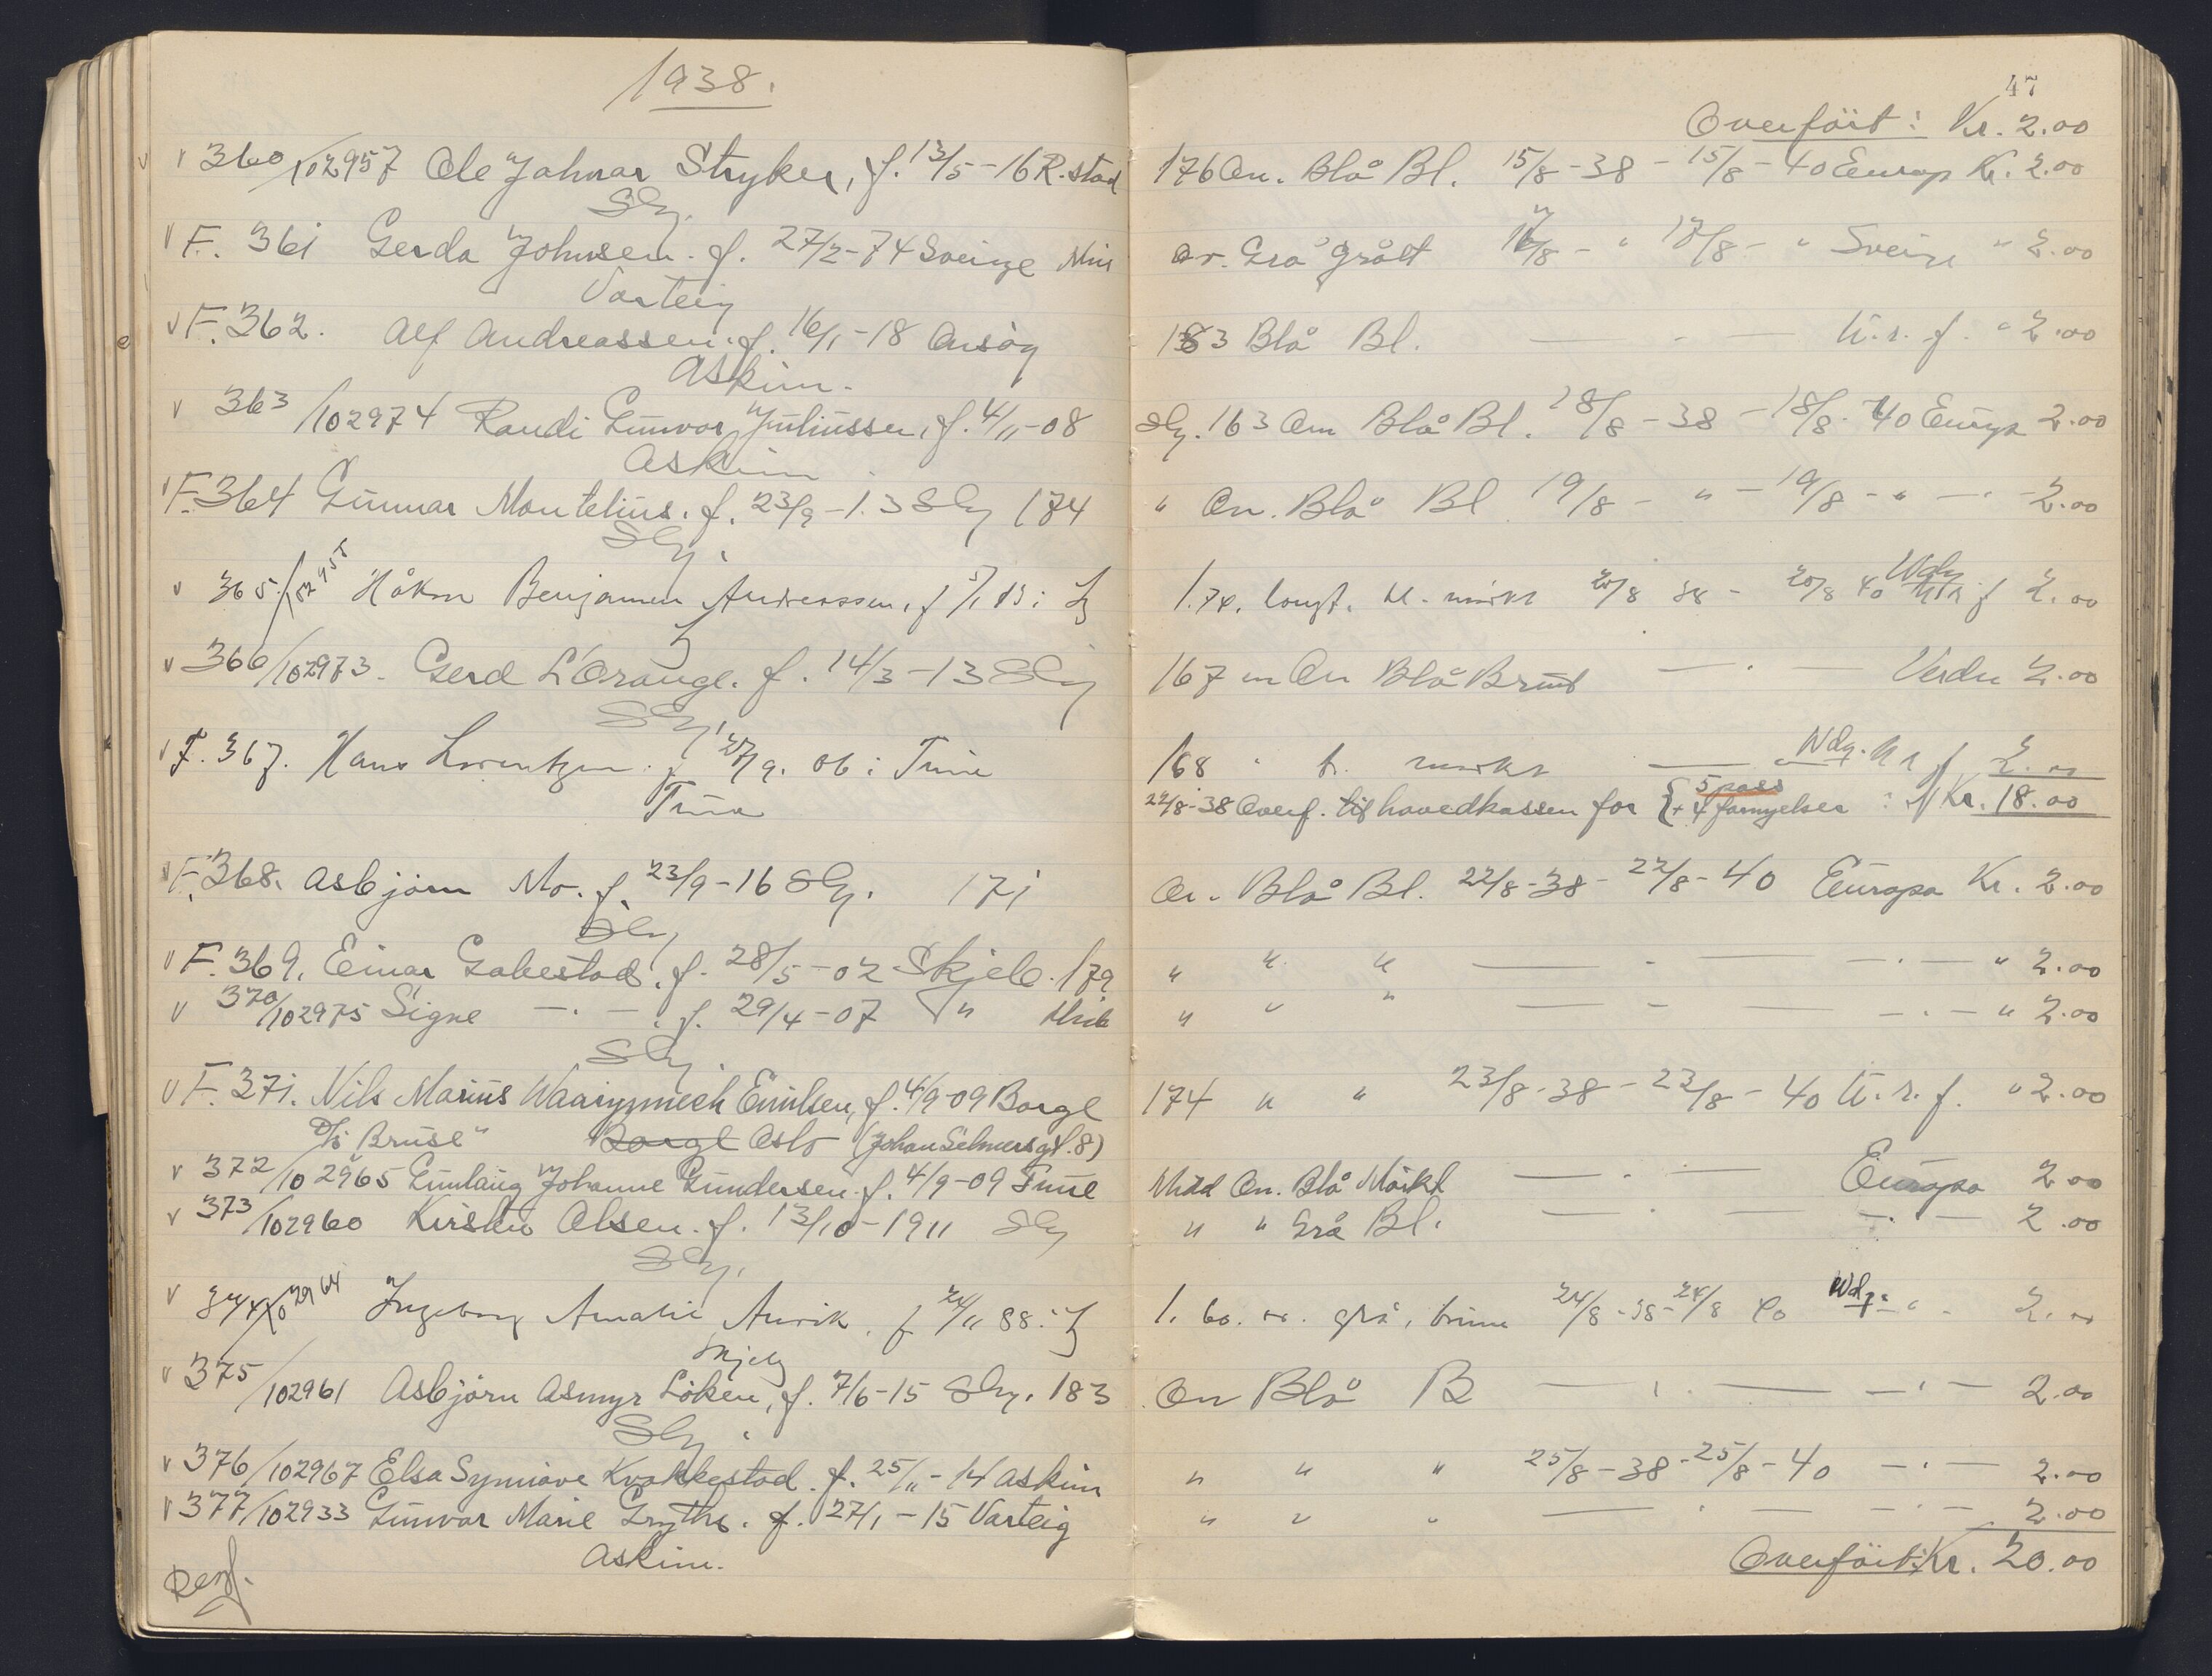 1938.
360/102957 Ole Jahnar Stryker, f. 13/5-16 R.stad
Sbg.
F. 361 Gerda Johnsen. f. 27/2-74 Sverige
Varteig
F. 362. Alf Andreassen. f. 16/1-18 Onsøy
Askim.
363/102974 Randi Gunvor Juliussen, f. 4/11-08
Askim
F. 364 Gunnar Montelius. f. 23/9-13 Sbg 174
Sbg.
365/ Håkon Benjamin Andreassen, f
366/102973. Gerd L'Orange. f. 14/3-13 Sbg
Sbg.
F. 367. Hans Lorentzen. f 27/9. 06 i Tune
Tune
F. 368. Asbjørn Mo. f. 23/9-16 Sbg. 171
Sbg
F. 369. Einar Gabestad. f. 28/5-02 Skjeb. 179
370/102975 Signe —·— . f. 29/4-07 "
Sbg.
F. 371. Nils Marius Emilsen, f. 4/9-09 Borge
D/S Bruse" Borge Oslo (Johan Selmersgt. 8)
372/102965 Gunlaug Johanne Gundersen. f. 4/9-09 Tune
373/102960 Kirsten Olsen. f. 13/10-1911 Sbg
Sbg.
374/102964 Ingeborg Amalie f 24/11 88 i
Skjeb
375/102961 Asbjørn Asmyr Løken, f. 7/6-15 Sbg. 183
Sbg.
376/102967 Elsa Synnøve Kvakkestad. f. 25/11-14 Askim
377/102933 Gunvor Marie f. 27/1-15 Varteig
Askim.
47
Overført: Kr. 2.00
176 An. Blå Bl. 15/8-38 - 15/8-40 Europ Kr. 2.00
or. Grå Grått /8 - " 17/8 - " Sverige " 2.00
183 Blå Bl. — · — U.r.f. " 2.00
Sbg. 163 An Blå Bl. 18/8-38 - 18/8-40 Europa 2.00
" An. Blå Bl 19/8 - " - 19/8 - " — · — 2.00
1.74. bl. mørkt 20/8 38 - 20/8 40 f 2.00
167 m An Blå Brunt — · — Verden 2.00
168 " mørkt — · — U r f 2.00
22/8-38 Overf. til hovedkassen for { 5 pass + 4 fornyelser : Kr. 18.00
An. Blå Bl. 22/8-38 - 22/8-40 Europa Kr. 2.00
" " " — · — — · — " 2.00
" " " — · — — · — " 2.00
174 " " 23/8-38 - 23/8-40 U.r.f. " 2.00
Midd An. Blå Mørkt — · — Europa 2.00
" " Grå Bl. — · — — · — 2.00
1.60. grå, brune 24/8-38 - 24/8 40 2.00
An Blå B — · — — · — 2.00
" " " 25/8-38 - 25/8-40 — · — 2.00
" " " — · — — · — 2.00
Overført: Kr. 20.00